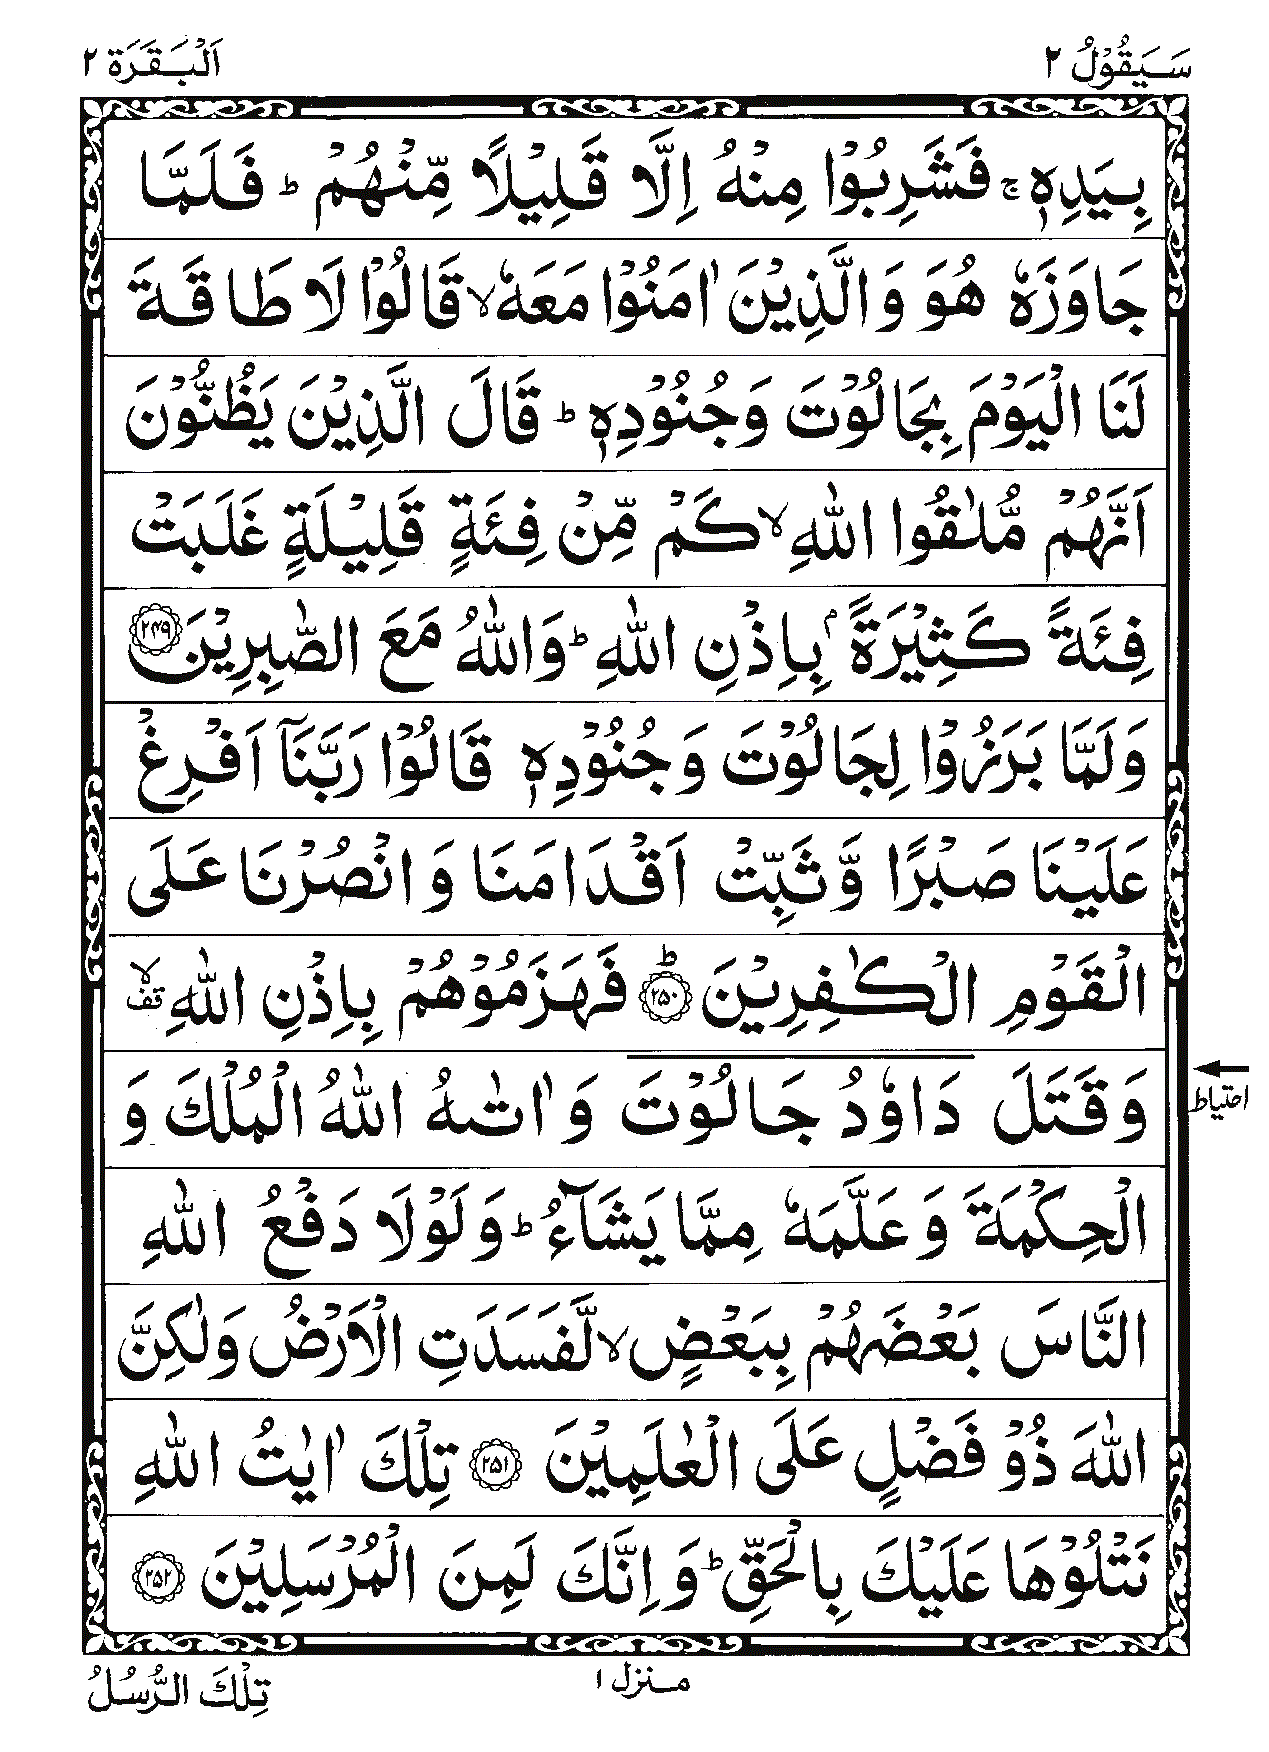 سَيَقُوْلُ ٢
اَلْبَقَرَة ٢
بِيَدِهٖ ۚ فَشَرِبُوْا مِنْهُ اِلَّا قَلِيْلًا مِّنْهُمْ ؕ فَلَمَّا
جَاوَزَهٗ هُوَ وَالَّذِيْنَ اٰمَنُوْا مَعَهٗ ۙ قَالُوْا لَا طَاقَةَ
لَنَا الْيَوْمَ بِجَالُوْتَ وَجُنُوْدِهٖ ؕ قَالَ الَّذِيْنَ يَظُنُّوْنَ
اَنَّهُمْ مُّلٰقُوا اللّٰهِ ۙ كَمْ مِّنْ فِئَةٍ قَلِيْلَةٍ غَلَبَتْ
فِئَةً كَثِيْرَةًۢ بِاِذْنِ اللّٰهِ ؕ وَاللّٰهُ مَعَ الصّٰبِرِيْنَ ٢٤٩
وَلَمَّا بَرَزُوْا لِجَالُوْتَ وَجُنُوْدِهٖ قَالُوْا رَبَّنَاۤ اَفْرِغْ
عَلَيْنَا صَبْرًا وَّثَبِّتْ اَقْدَامَنَا وَانْصُرْنَا عَلَى
الْقَوْمِ الْكٰفِرِيْنَ ؕ ٢٥٠ فَهَزَمُوْهُمْ بِاِذْنِ اللّٰهِ ۙ قف
وَقَتَلَ دَاوٗدُ جَالُوْتَ وَاٰتٰىهُ اللّٰهُ الْمُلْكَ وَ
احتیاط
الْحِكْمَةَ وَعَلَّمَهٗ مِمَّا يَشَآءُ ؕ وَلَوْلَا دَفْعُ اللّٰهِ
النَّاسَ بَعْضَهُمْ بِبَعْضٍ ۙ لَّفَسَدَتِ الْاَرْضُ وَلٰكِنَّ
اللّٰهَ ذُوْ فَضْلٍ عَلَى الْعٰلَمِيْنَ ٢٥١ تِلْكَ اٰيٰتُ اللّٰهِ
نَتْلُوْهَا عَلَيْكَ بِالْحَقِّ ؕ وَاِنَّكَ لَمِنَ الْمُرْسَلِيْنَ ٢٥٢
منزل ١
تِلْكَ الرُّسُلُ